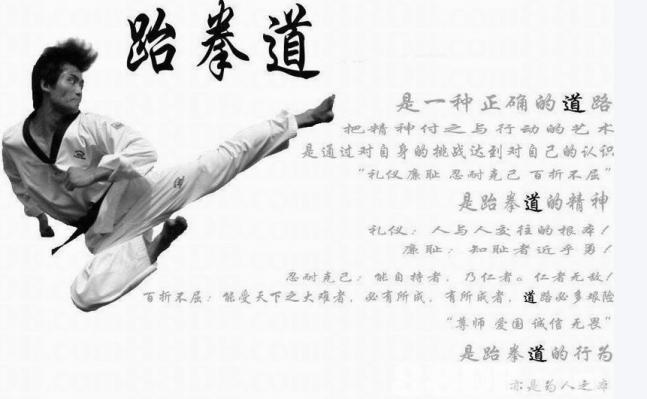 跆拳道
是一种正确的道路
把精神付之与行动的艺术
是通过对自身的挑战达到对自己的认识
“礼仪廉耻 忍耐克己 百折不屈”
是跆拳道的精神
礼仪：人与人交往的根本！
廉耻：知耻者近乎勇！
忍耐克己：能自持者，乃仁者。仁者无敌！
百折不屈：能受天下之大难者，必有所成，有所成者，道路必多艰险
“尊师 爱国 诚信 无畏”
是跆拳道的行为
亦是为人之本